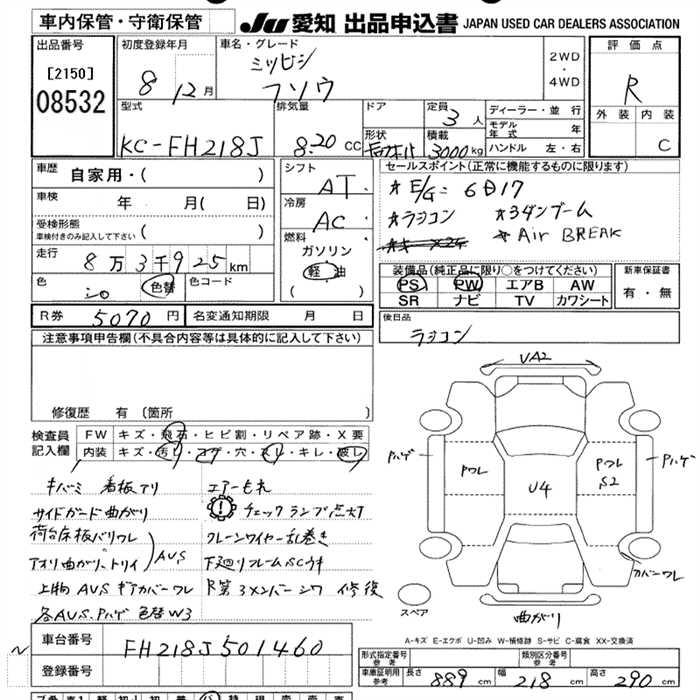 車内保管・守衛保管 JU 愛知 出品申込書 JAPAN USED CAR DEALERS ASSOCIATION
出品番号
[2150]
08532
初度登録年月
8 12月
車名・グレード
ミツビシ
フソウ
2WD
・
4WD
評価点
R
外装 内装
C
型式
KC-FH218J
排気量
8.20 CC
ドア
形状
定員
3人
積載
3000kg
ディーラー・並行
モデル年式 年
ハンドル 左・右
車歴
自家用・( )
車検
年 月( 日)
受検形態
車検付きのみ記入して下さい ( )
走行
8万3千925km
色
シロ
色替
色コード
シフト
AT
冷房
AC
燃料
ガソリン
軽油
( )
セールスポイント(正常に機能するものに限ります)
☆E/G=6D17
☆ラジコン ☆3ダンブーム
☆Air BREAK
装備品(純正品に限り○をつけてください)
PS PW エアB AW
SR ナビ TV カワシート
新車保証書
有・無
R券 5070円 名変通知期限 月 日
後日品
ラジコン
注意事項申告欄(不具合内容等は具体的に記入して下さい)
修復歴 有 (箇所 )
検査員記入欄
FW キズ・飛石・ヒビ割・リペア跡・X要
内装 キズ・汚レ・コゲ・穴・スレ・キレ・破レ
キバミ 看板アリ エアーモレ
サイドガード曲がり チェックランプ点灯
荷台床板バリワレ クレーンワイヤー乱巻き
アオリ曲がり、トリイ AUS 下廻りフレームSCウキ
上物AUS ギアカバーワレ R第3メンバーシワ修復
各AUS.Pハゲ 色替W3
UA2
Pハゲ
Pワレ
U4
Pワレ
S2
Pハゲ
カバーワレ
スペア
曲がり
A-キズ E-エクボ U-凹み W-補修跡 S-サビ C-腐食 XX-交換済
車台番号 FH218J501460
登録番号
形式指定番号 参考
類別区分番号 参考
車庫証明用 参考
長さ 889cm 幅 218cm 高さ 290cm